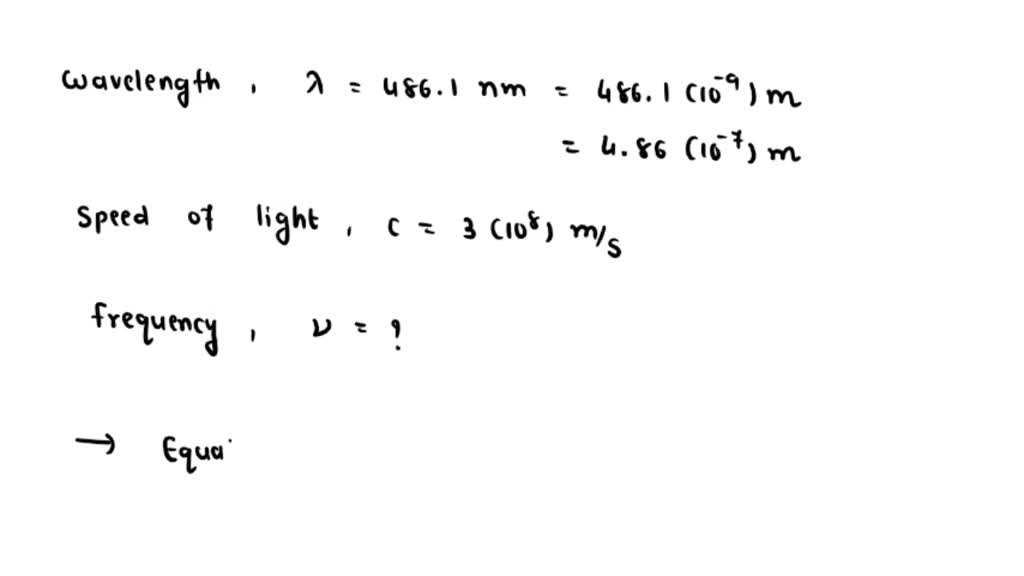 wavelength, λ = 486.1 nm = 486.1 (10⁻⁹) m
= 4.86 (10⁻⁷) m
Speed of light, c = 3 (10⁸) m/s
frequency, ν = ?
→ Equa